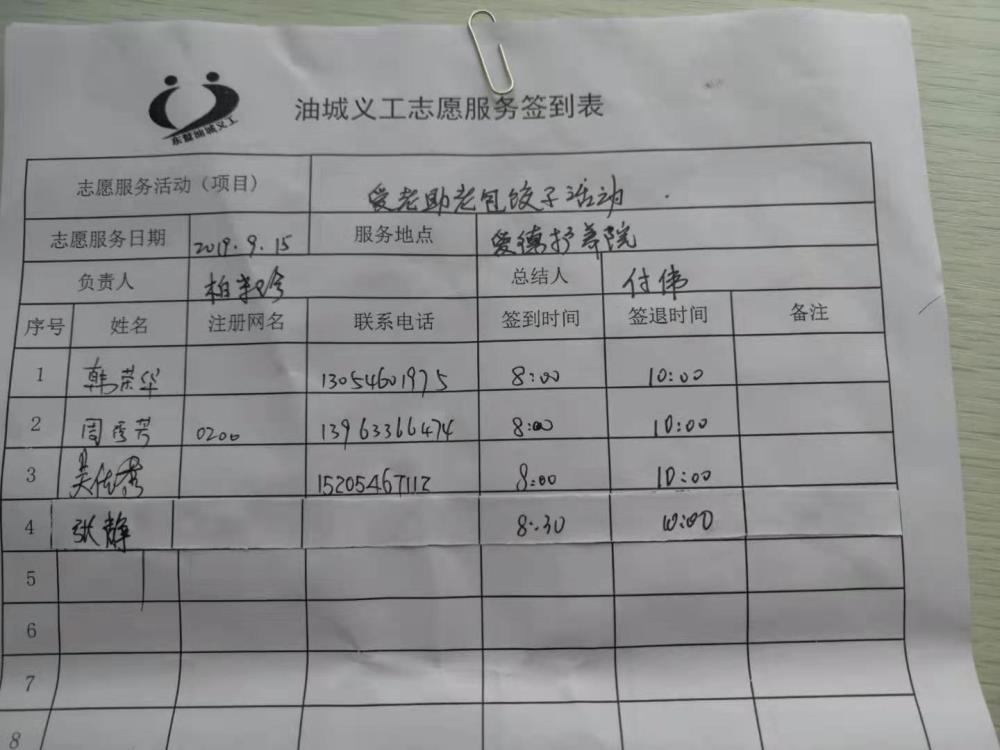 东营油城义工
油城义工志愿服务签到表
志愿服务活动（项目） 爱老助老包饺子活动
志愿服务日期 2019.9.15 服务地点 爱德护养院
负责人 柏 总结人 付伟
序号 姓名 注册网名 联系电话 签到时间 签退时间 备注
1 韩荣华 13054601975 8:00 10:00
2 周秀芳 0200 13963366474 8:00 10:00
3 15205467112 8:00 10:00
4 张静 8:30 10:00
5
6
7
8